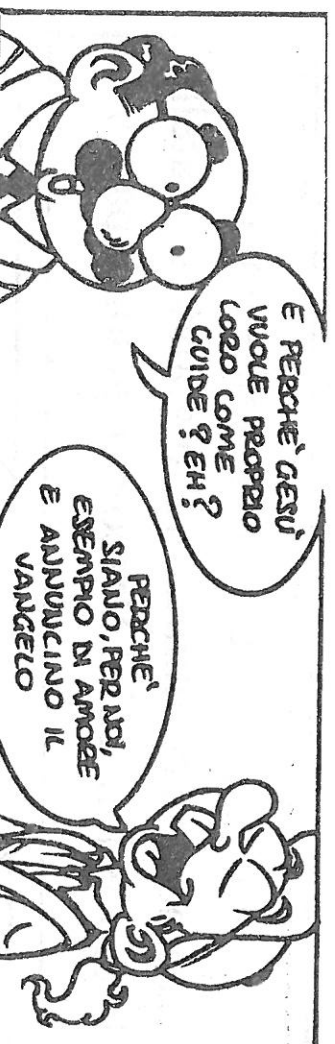 E PERCHÈ GESÙ
VUOLE PROPRIO
LORO COME
GUIDE? EH?
PERCHÈ
SIANO, PER NOI,
ESEMPIO DI AMORE
E ANNUNCINO IL
VANGELO